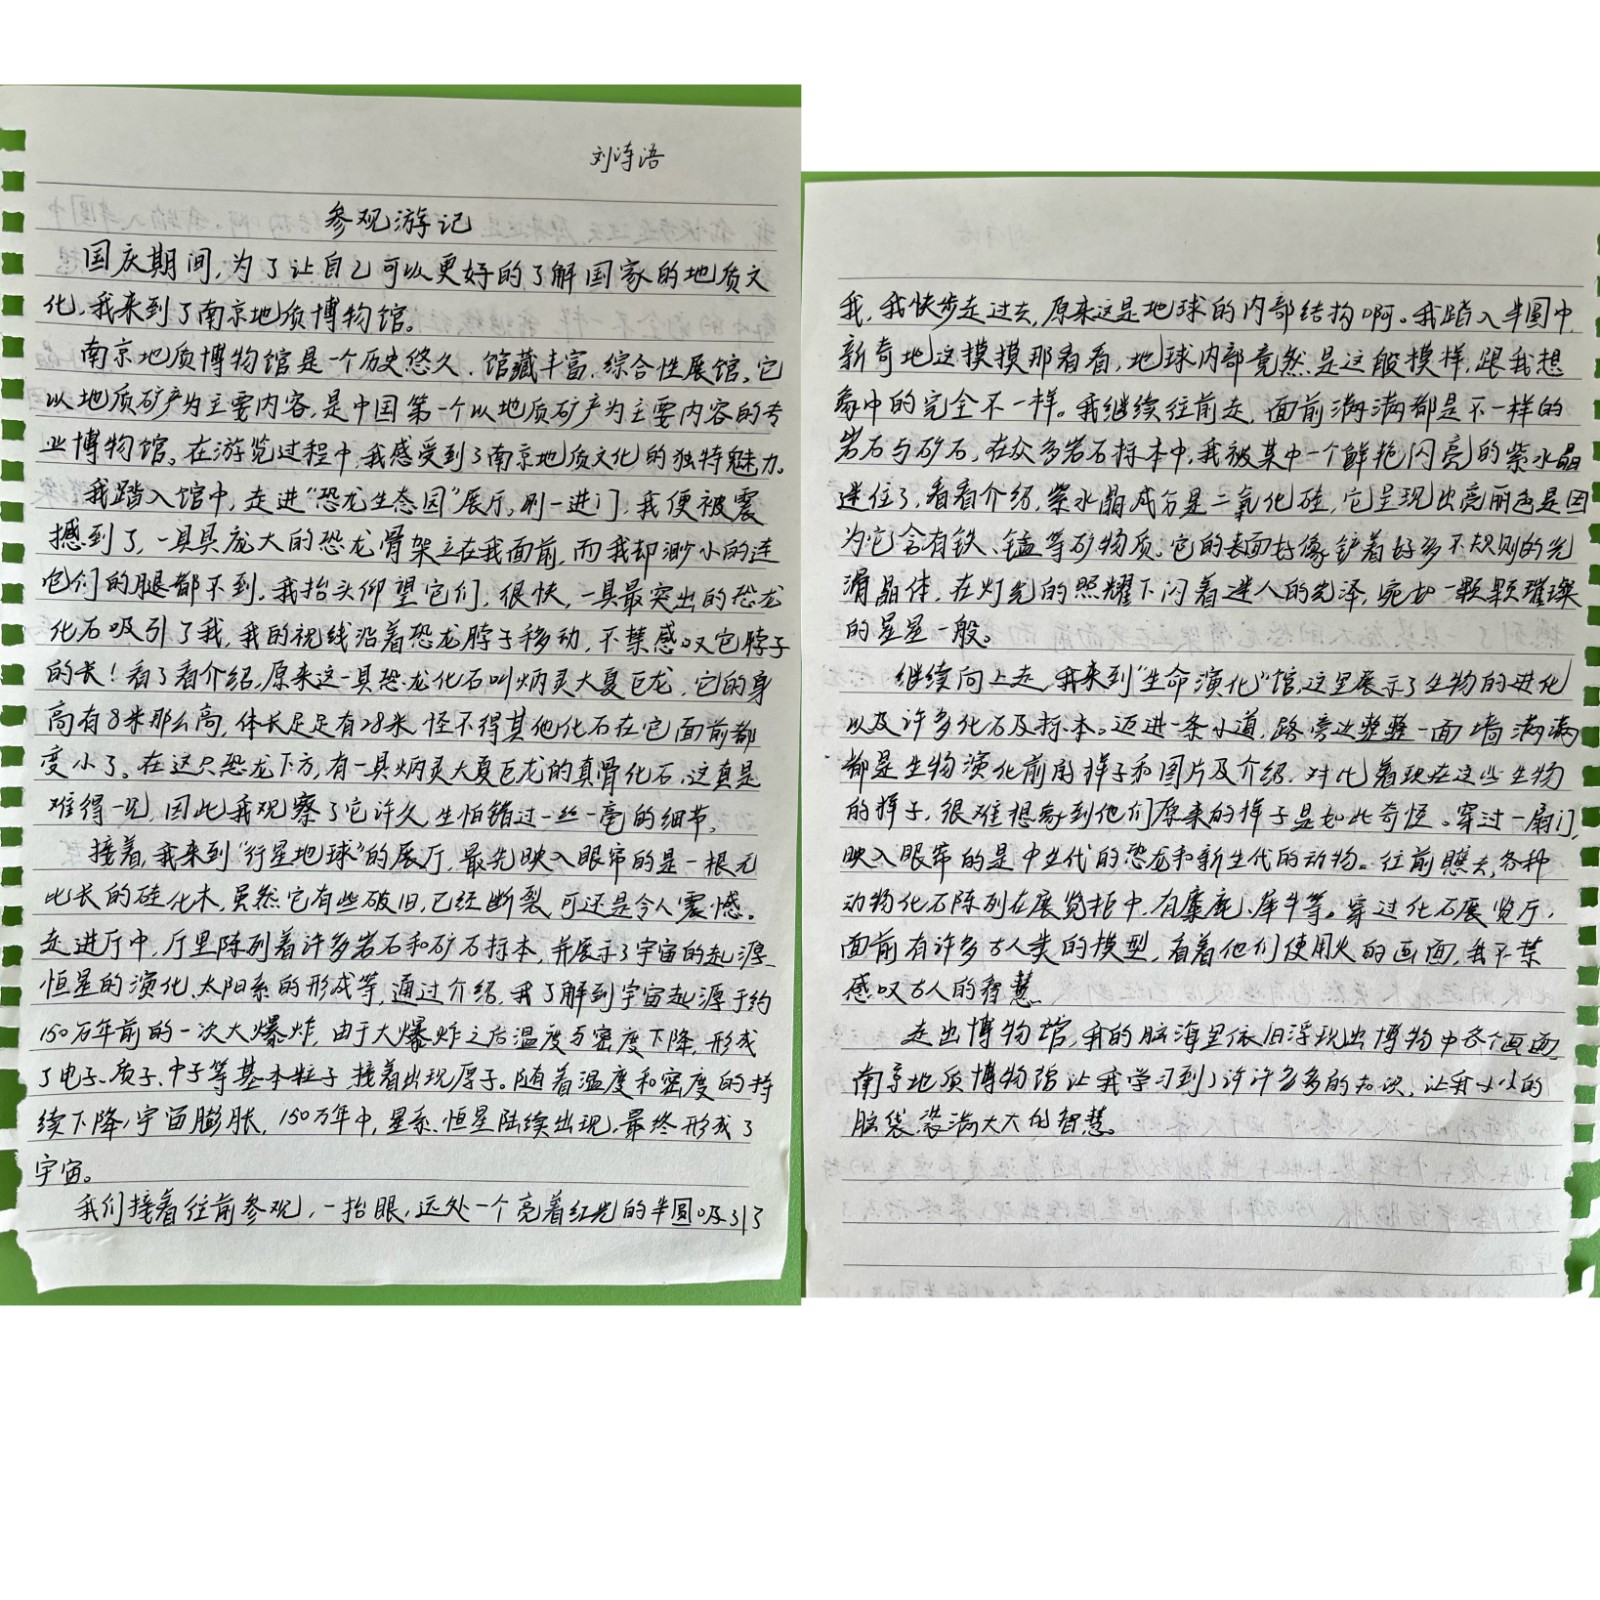 刘诗语
参观游记
国庆期间,为了让自己可以更好的了解国家的地质文
化,我来到了南京地质博物馆。
南京地质博物馆是一个历史悠久、馆藏丰富、综合性展馆,它
以地质矿产为主要内容,是中国第一个以地质矿产为主要内容的专
业博物馆。在游览过程中,我感受到了南京地质文化的独特魅力。
我踏入馆中,走进“恐龙生态园”展厅,刚一进门,我便被震
撼到了,一具具庞大的恐龙骨架立在我面前,而我却渺小的连
它们的腿都不到。我抬头仰望它们,很快,一具最突出的恐龙
化石吸引了我,我的视线沿着恐龙脖子移动,不禁感叹它脖子
的长!看了看介绍,原来这一具恐龙化石叫炳灵大夏巨龙,它的身
高有8米那么高,体长足足有28米,怪不得其他化石在它面前都
变小了。在这只恐龙下方,有一具炳灵大夏巨龙的真骨化石,这真是
难得一见,因此我观察了它许久,生怕错过一丝一毫的细节。
接着,我来到“行星地球”的展厅,最先映入眼帘的是一根无
比长的硅化木,虽然它有些破旧,已经断裂,可还是令人震憾。
走进厅中,厅里陈列着许多岩石和矿石标本,并展示了宇宙的起源、
恒星的演化、太阳系的形成等,通过介绍,我了解到宇宙起源于约
150万年前的一次大爆炸,由于大爆炸之后温度与密度下降,形成
了电子、质子、中子等基本粒子,接着出现原子。随着温度和密度的持
续下降,宇宙膨胀,150万年中,星系、恒星陆续出现,最终形成了
宇宙。
我们接着往前参观,一抬眼,远处一个亮着红光的半圆吸引了
我,我快步走过去,原来这是地球的内部结构啊。我踏入半圆中,
新奇地这摸摸那看看,地球内部竟然是这般模样,跟我想
象中的完全不一样。我继续往前走,面前满满都是不一样的
岩石与矿石,在众多岩石标本中,我被其中一个鲜艳闪亮的紫水晶
迷住了,看看介绍,紫水晶成分是二氧化硅,它呈现出亮丽色是因
为它含有铁、锰等矿物质。它的表面好像铲着好多不规则的光
滑晶体,在灯光的照耀下闪着迷人的光泽,宛如一颗颗璀璨
的星星一般。
继续向上走,我来到“生命演化”馆,这里展示了生物的进化
以及许多化石及标本。迈进一条小道,路旁边整整一面墙满满
都是生物演化前的样子和图片及介绍,对比着现在这些生物
的样子,很难想象到他们原来的样子是如此奇怪。穿过一扇门,
映入眼帘的是中生代的恐龙和新生代的动物。往前瞧去,各种
动物化石陈列在展览柜中,有麋鹿、犀牛等。穿过化石展览厅,
面前有许多古人类的模型,看着他们使用火的画面,我不禁
感叹古人的智慧。
走出博物馆,我的脑海里依旧浮现出博物中各个画面,
南京地质博物馆让我学习到了许许多多的知识,让我小小的
脑袋,装满大大的智慧。